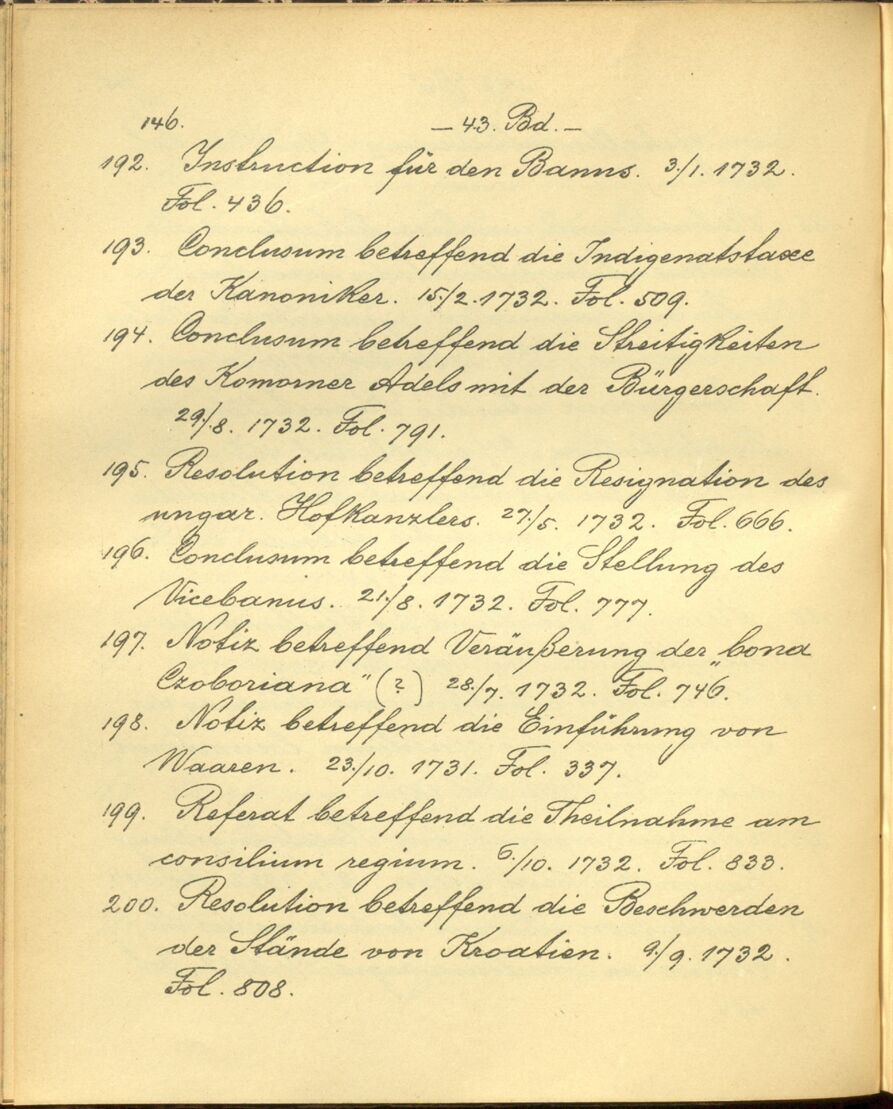 146. — 43. Bd. —
192. Instruction für den Banus. 3./1. 1732.
Fol. 436.
193. Conclusum betreffend die Indigenatstaxe
der Kanoniker. 15./2. 1732. Fol. 509.
194. Conclusum betreffend die Streitigkeiten
des Komorner Adels mit der Bürgerschaft.
29./8. 1732. Fol. 791.
195. Resolution betreffend die Resignation des
ungar. Hofkanzlers. 27./5. 1732. Fol. 666.
196. Conclusum betreffend die Stellung des
Vicebanus. 21./8. 1732. Fol. 777.
197. Notiz betreffend Veräußerung der „bona
Czoboriana“ (?) 28./7. 1732. Fol. 746.
198. Notiz betreffend die Einführung von
Waaren. 23./10. 1731. Fol. 337.
199. Referat betreffend die Theilnahme am
consilium regium. 6./10. 1732. Fol. 833.
200. Resolution betreffend die Beschwerden
der Stände von Kroatien. 9./9. 1732.
Fol. 808.